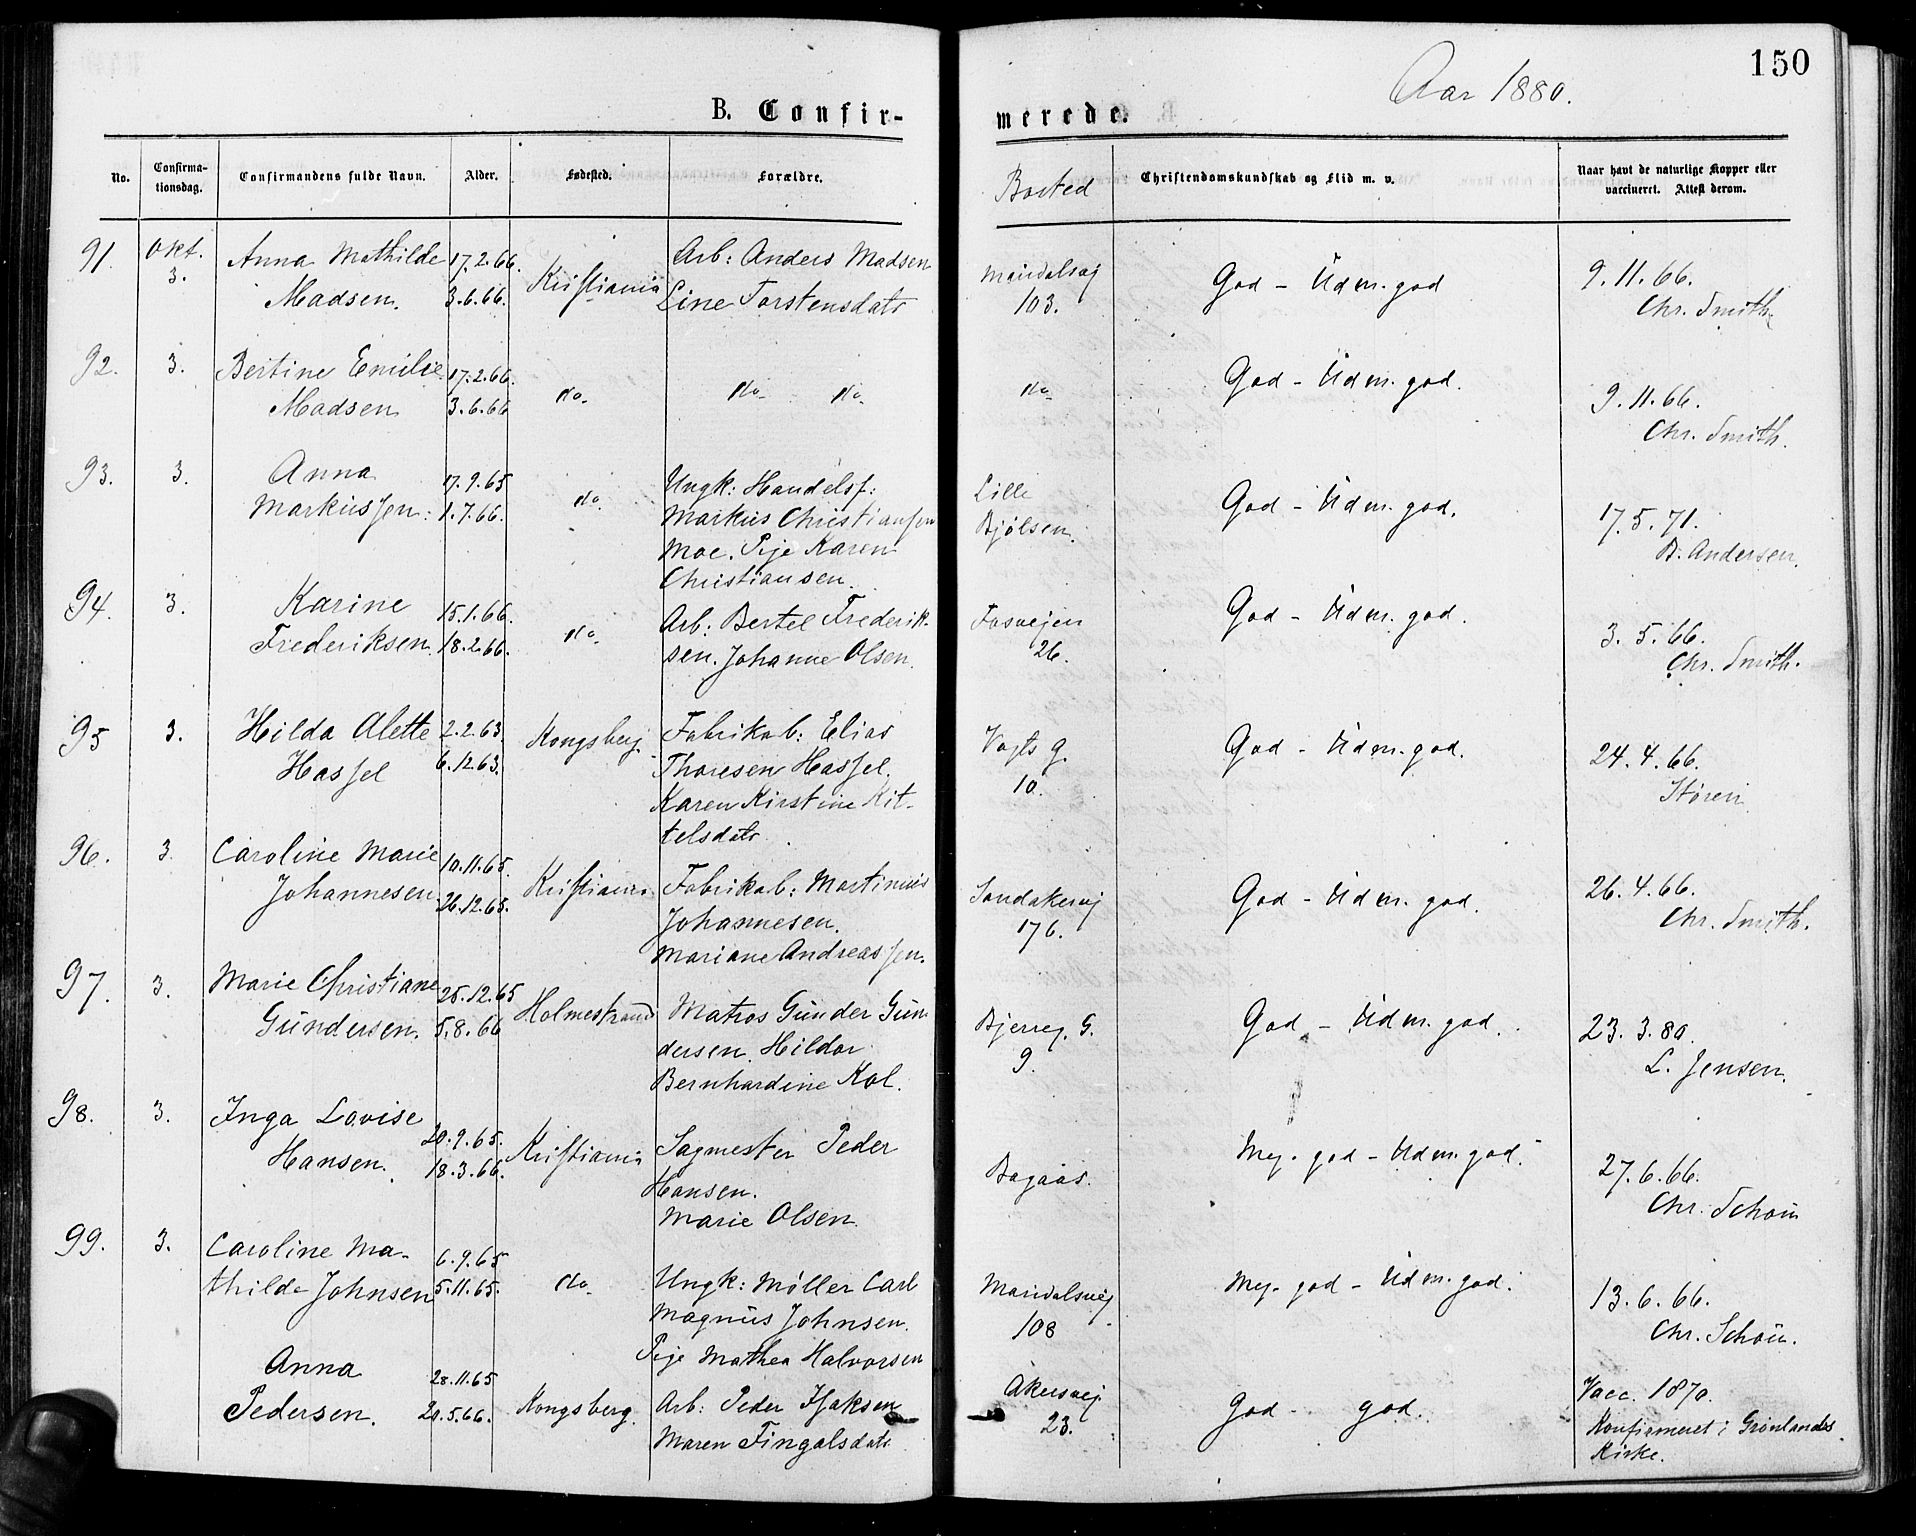 150
Aar 1880.
B. Confir-
merede.
No.
Confirma-
tionsdag.
Confirmandens fulde Navn.
Alder.
Fødested.
Forældre.
Bosted
Christendomskundskab og Flid m. v.
Naar havt de naturlige Kopper eller
vaccineret. Attest derom.
91. Okt. 3.
Anna Mathilde
Madsen.
17.2.66.
3.6.66.
Kristiania
Arb: Anders Madsen
Line Torstensdatr
Maridalsvej
103.
God - Udm. god
9.11.66.
Chr. Smith
92. 3.
Bertine Emilie
Madsen
17.2.66.
3.6.66
do.
do. do.
do.
God - Udm. god.
9.11.66.
Chr. Smith.
93. 3.
Anna
Markussen.
17.9.65
1.7.66.
do.
Ungk: Handelsf:
Markus Christiansen
Moe. Pige Karen
Christiansen.
Lille
Bjølsen.
God - Udm. god.
17.5.71.
B. Andersen.
94. 3.
Karine
Frederiksen.
15.1.66.
18.2.66.
do.
Arb: Bertel Frederik-
sen. Johanne Olsen.
Fosvejen
26.
God - Udm. god.
3.5.66.
Chr. Smith.
95 3.
Hilda Alette
Hassel
2.2.63.
6.12.63.
Kongsberg.
Fabrikab: Elias
Thoresen Hassel.
Karen Kirstine Kit-
telsdatr.
Vogts g.
10.
God - Udm. god.
24.4.66.
Støren
96. 3.
Caroline Marie
Johannesen.
10.11.65.
26.12.65.
Kristiania
Fabrikab: Martinius
Johannesen.
Mariane Andreassen.
Sandakervej
176.
God - Udm. god.
26.4.66.
Chr. Smith.
97. 3.
Marie Christiane
Gundersen.
25.12.65
5.8.66
Holmestrand
Matros Gunder Gun
dersen. Hildor
Bernhardine Kol.
Bjerreg. G.
9.
God - Udm. god.
23.3.80.
L. Jensen.
98. 3.
Inga Lovise
Hansen.
20.9.65.
18.3.66.
Kristiania
Sagmester Peder
Hansen.
Marie Olsen.
Bagaas.
Meg. god - Udm. god.
27.6.66.
Chr. Schou
99. 3.
Caroline Ma-
thilde Johnsen
6.9.65
5.11.65.
do.
Ungk: Møller Carl
Magnus Johnsen.
Pige Mathea Halvorsen
Maridalsvej
108
Meg. god - Udm. god.
13.6.66.
Chr. Schou.
Anna
Pedersen.
28.11.65
20.5.66.
Kongsberg.
Arb: Peder Isaksen
Maren Fingalsdatr
Akersvej.
23.
God - god.
Vacc. 1870.
Konfirmeret i Grønlands
Kirke.